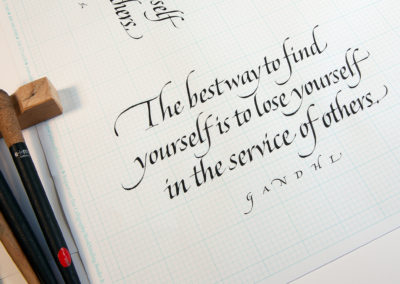 self
hers.
The best way to find
yourself is to lose yourself
in the service of others.
GANDHI